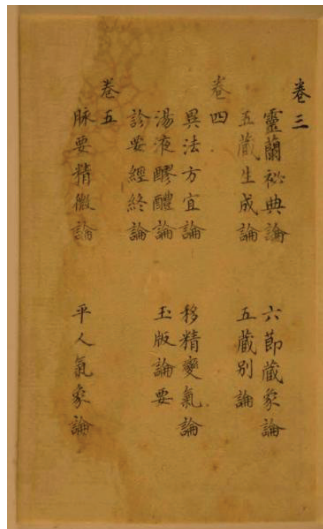 卷三
靈蘭祕典論 六節藏象論
五藏生成論 五藏別論
卷四
異法方宜論 移精變氣論
湯液醪醴論 玉版論要
診要經終論
卷五
脉要精微論 平人氣象論